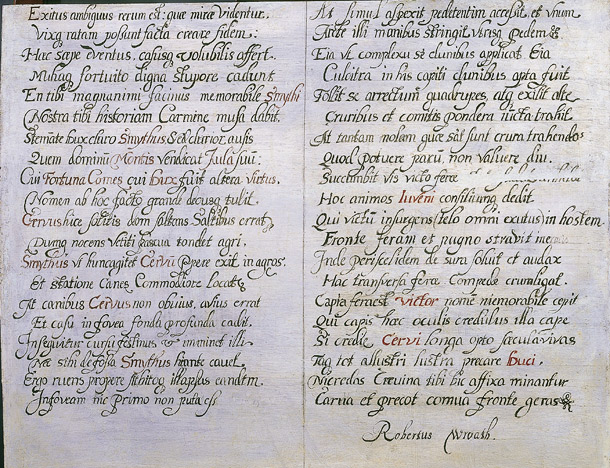 Exitus ambiguus rerum est: quæ mira videntur,
Vixq ratam possunt facta creare fidem:
Hac sæpe eventus, casusq volubilis affert.
Multaq fortuito digna stupore cadunt.
En tibi magnanimi facinus memorabile Smythi
Nostra tibi historiam Carmine musa dabit.
Stemate hux claro Smythus, Sed clarior, ausis
Quem dominum Montis vendicat Aula suu:
Cui Fortuna Comes cui hux fuit altera virtus.
Nomen ab hoc facto grande decusq tulit.
Cervus hice solitis dom saltans Saltibus errat
Dumq nocens Veneti pascua tondet agri.
Smythus ut hunc agitet Cervu Ppere exit in agros.
Et statione Canes Commodiore Locat
At canibus Cervus non obvius, avius errat
Et casu in fovea fonda profunda cadit.
Insequitur cursu festinus et imminet illi
Smythus hiante
Ergo ruens propere
In foveam nec Primo non puta
At simul aspexit pedetentim accessit et vnum
Arcte illi manibus stringit pedem
Eia vt complexu se clunibus applicat. Eia
Culcitra in his capiti clunibus apta fuit
Tollit se arrectum quadrupes, atq exilit alte
Cruribus et comitis pondera iuncta trahit.
At tantam molem quæ sat sunt crura trahendo
Quod Potuere paru, non valuere diu.
Succumbit vis victo feræ
Hoc animos Iuveni consiliumq dedit
Qui victu insurgens (telo omni exutus) in hostem.
Fronte feram et pugno stravit
Inde periscelidem de sura soluit et audax
Hac transversa feræ Compede crura ligat.
Capta fera est victor nome memorabile cepit
Qui capis hæc oculis credulus illa cape
Si credis Cervi longa opto sæcula vivas
Tuq tot allustri lustra precare huci.
Ni credas Crevina tibi hic affixa minantur
Cornua et precor cornua fronte geras
Robertus Wroath.